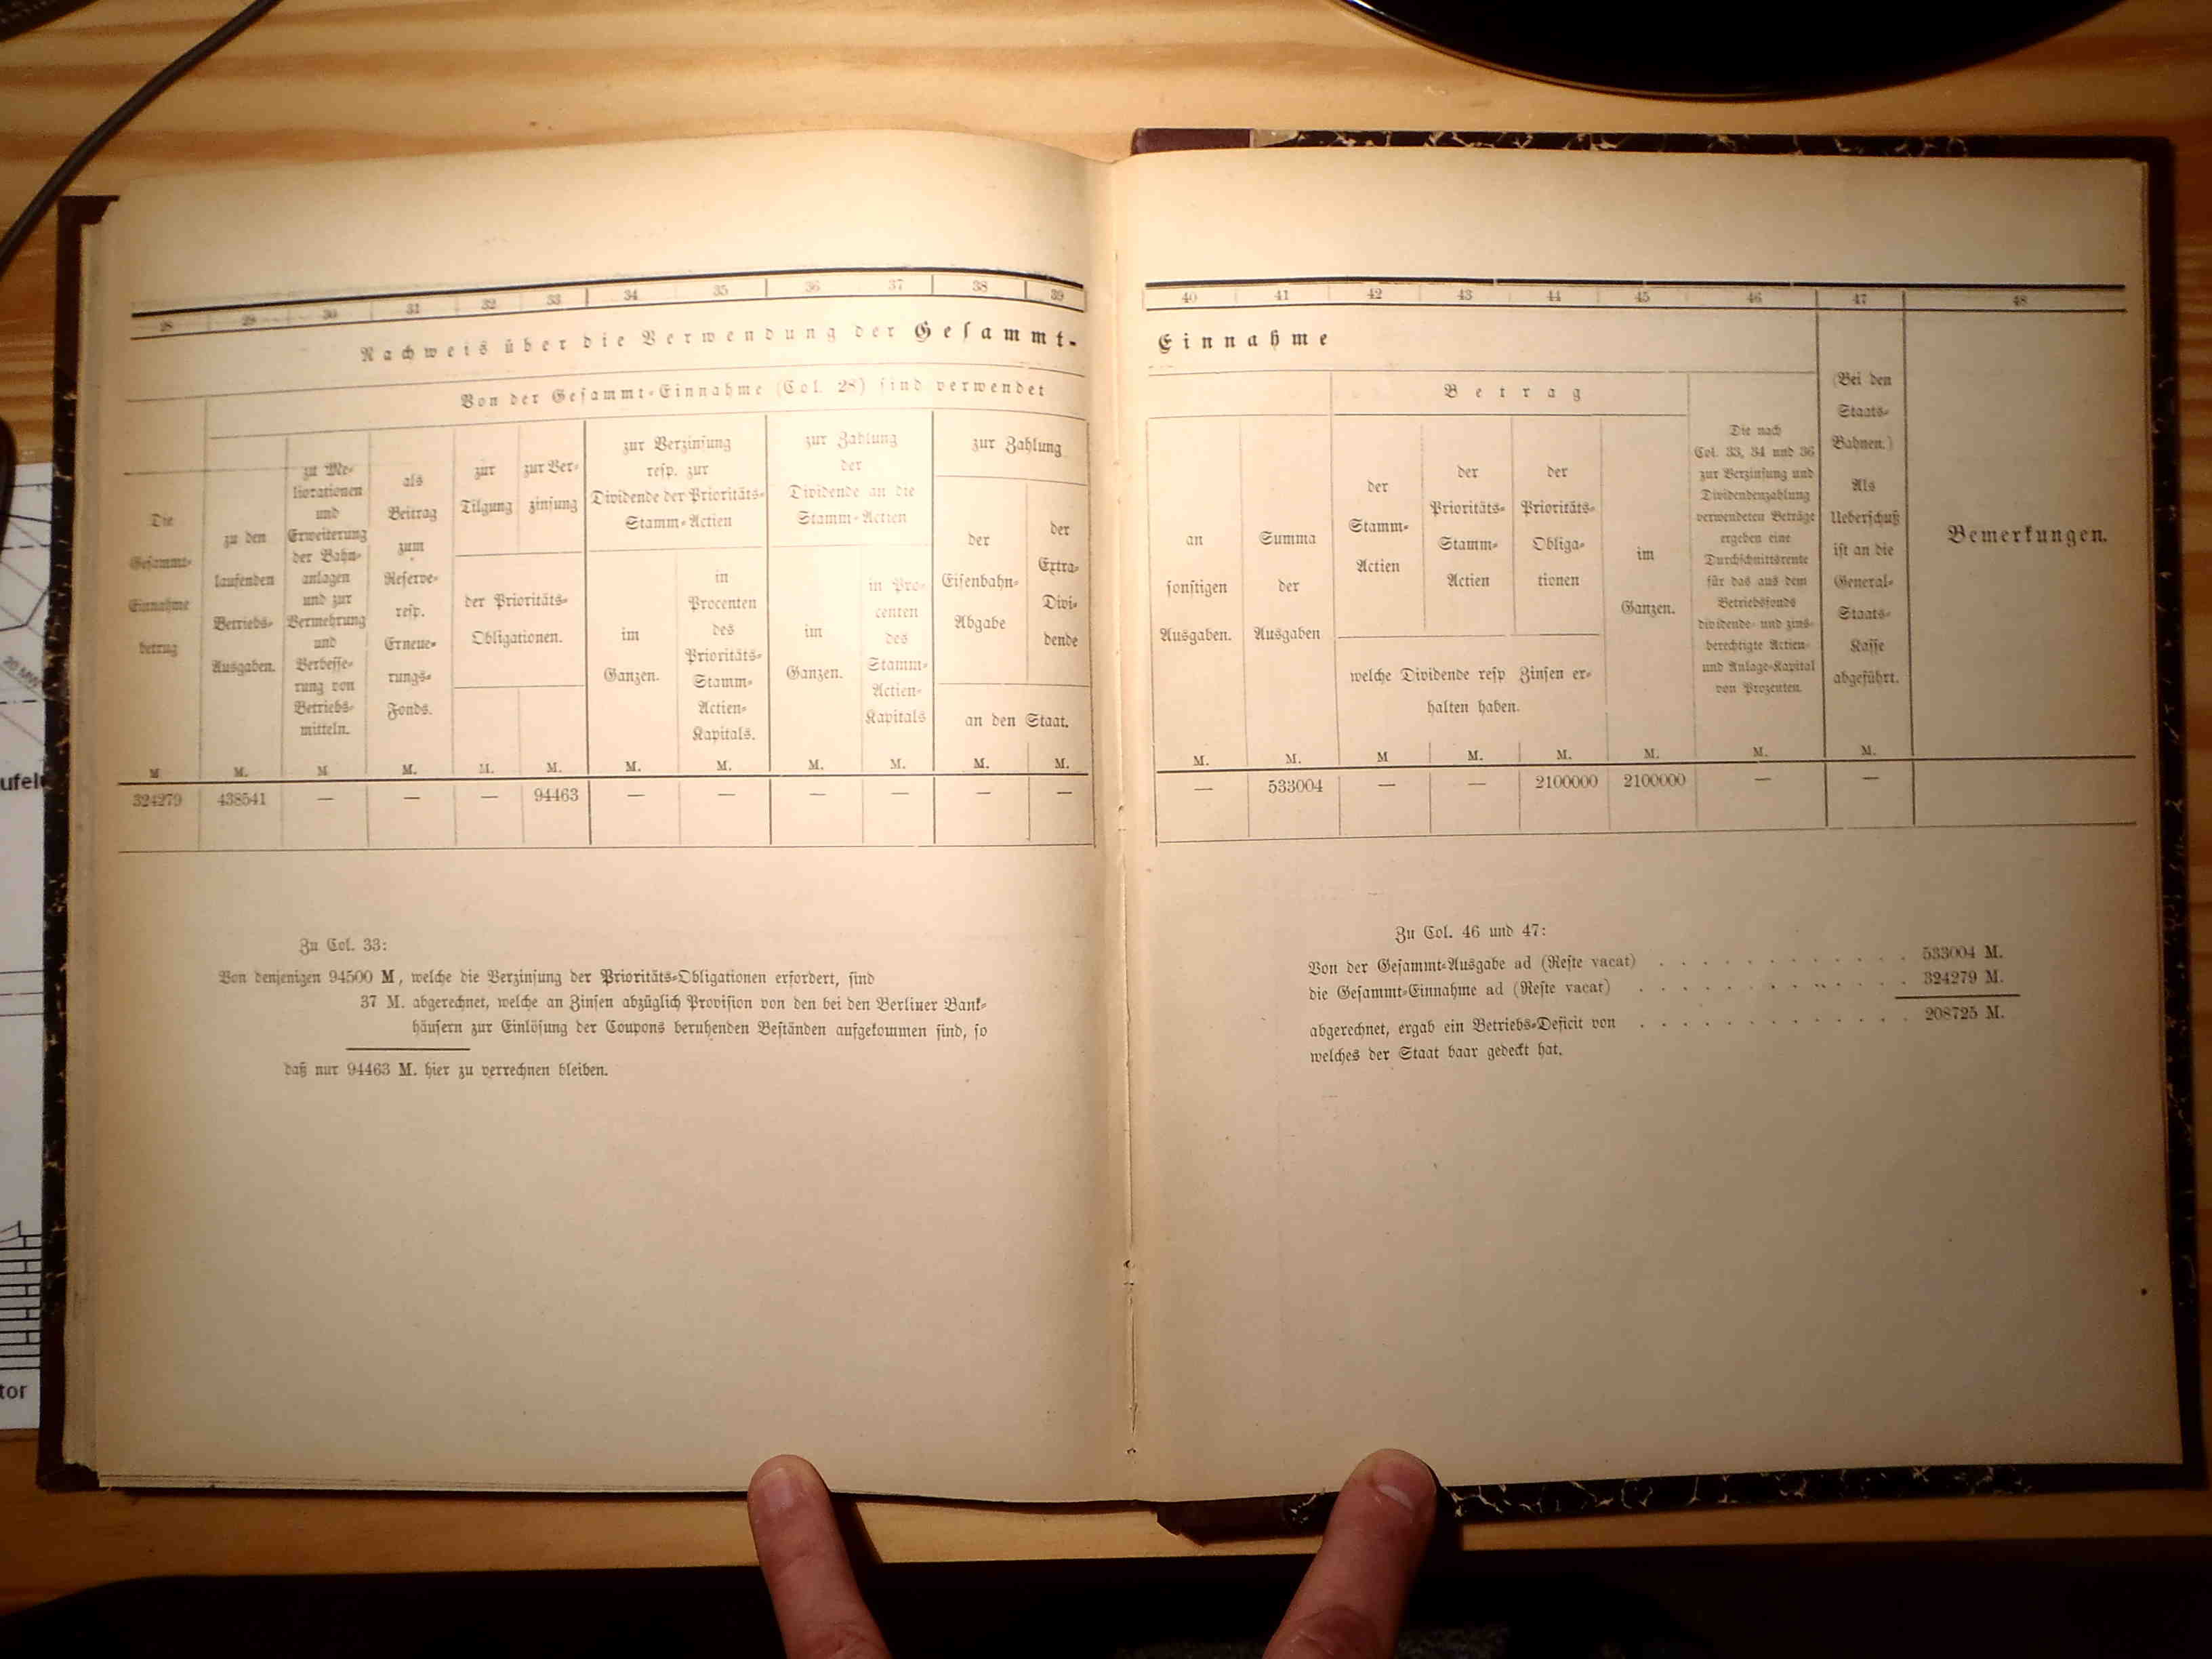 28 29 30 31 32 33 34 35 36 37 38 39
Nachweis über die Verwendung der Gesammt-
Von der Gesammt-Einnahme (Col. 28) sind verwendet
Die
Gesammt-
Einnahme
betrug
M
zu den
laufenden
Betriebs-
Ausgaben.
M.
zu Me-
liorationen
und
Erweiterung
der Bahn-
anlagen
und zur
Vermehrung
und
Verbesse-
rung von
Betriebs-
mitteln.
M
als
Beitrag
zum
Reserve-
resp.
Erneue-
rungs-
Fonds.
M.
zur
Tilgung
zur Ver-
zinsung
der Prioritäts-
Obligationen.
M. M.
zur Verzinsung
resp. zur
Dividende der Prioritäts-
Stamm-Actien
im
Ganzen.
M.
in
Procenten
des
Prioritäts-
Stamm-
Actien-
Kapitals.
M.
zur Zahlung
der
Dividende an die
Stamm-Actien
im
Ganzen.
M.
in Pro-
centen
des
Stamm-
Actien-
Kapitals
M.
zur Zahlung
der
Eisenbahn-
Abgabe
der
Extra-
Divi-
dende
an den Staat.
M. M.
324279 438541 — — — 94463 — — — — — —
Zu Col. 33:
Von denjenigen 94500 M, welche die Verzinsung der Prioritäts-Obligationen erfordert, sind
37 M. abgerechnet, welche an Zinsen abzüglich Provision von den bei den Berliner Bank-
häusern zur Einlösung der Coupons beruhenden Beständen aufgekommen sind, so
daß nur 94463 M. hier zu verrechnen bleiben.
40 41 42 43 44 45 46 47 48
Einnahme
an
sonstigen
Ausgaben.
M.
Summa
der
Ausgaben
M.
Betrag
der
Stamm-
Actien
der
Prioritäts-
Stamm-
Actien
der
Prioritäts-
Obliga-
tionen
welche Dividende resp Zinsen er-
halten haben.
M M. M.
im
Ganzen.
M.
Die nach
Col. 33, 34 und 36
zur Verzinsung und
Dividendenzahlung
verwendeten Beträge
ergeben eine
Durchschnittsrente
für das aus dem
Betriebsfonds
dividende- und zins-
berechtigte Actien-
und Anlage-Kapital
von Prozenten.
M.
(Bei den
Staats-
Bahnen.)
Als
Ueberschuß
ist an die
General-
Staats-
Kasse
abgeführt.
M.
Bemerkungen.
— 533004 — — 2100000 2100000 — —
Zu Col. 46 und 47:
Von der Gesammt-Ausgabe ad (Reste vacat) . . . . . . . . . . . . 533004 M.
die Gesammt-Einnahme ad (Reste vacat) . . . . . . . . . . . . . 324279 M.
abgerechnet, ergab ein Betriebs-Deficit von . . . . . . . . . . . . . 208725 M.
welches der Staat baar gedeckt hat.
20 MW
tor